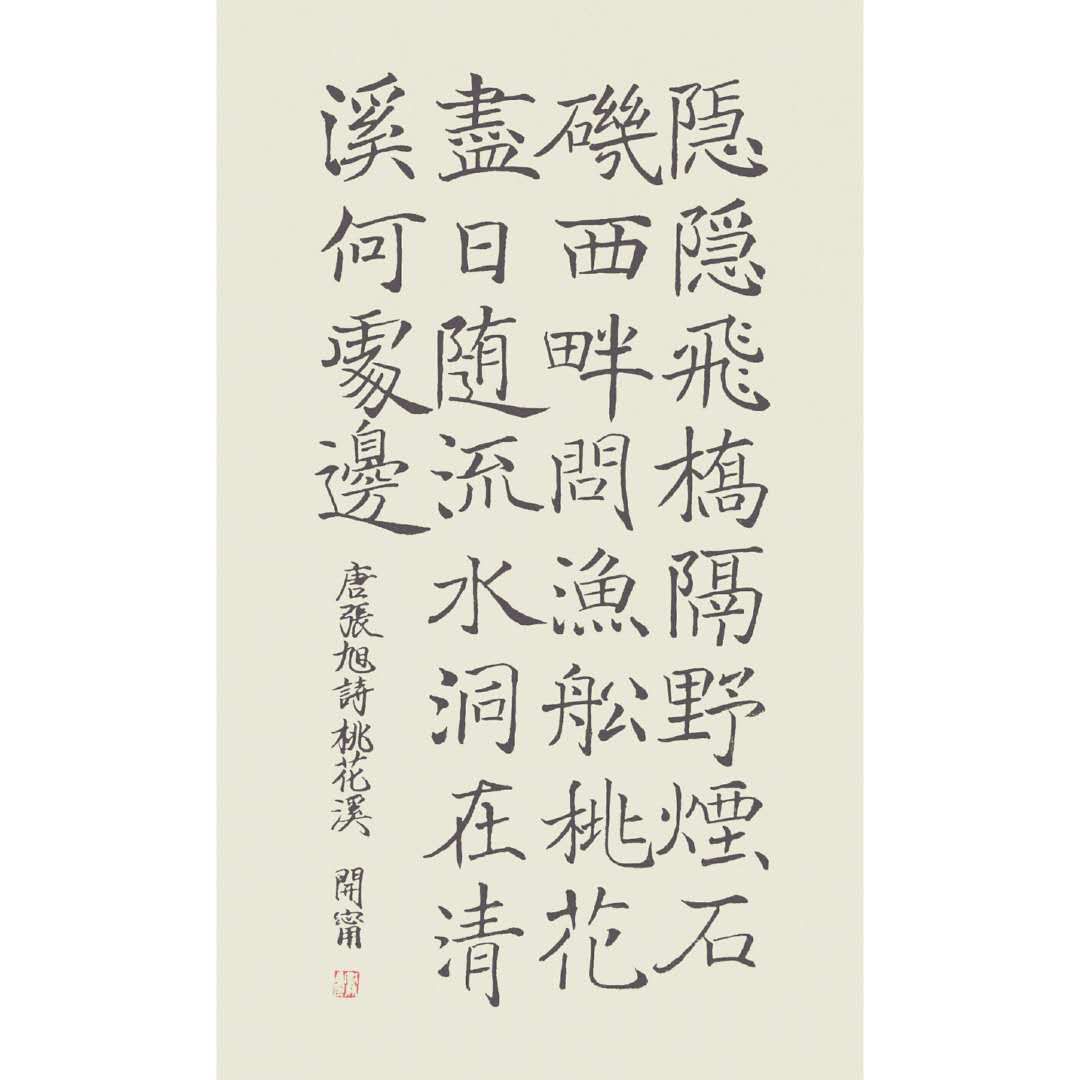 隠隠飛橋隔野煙石
磯西畔問漁舩桃花
盡日随流水洞在清
溪何處邊
唐張旭詩桃花溪 開甯